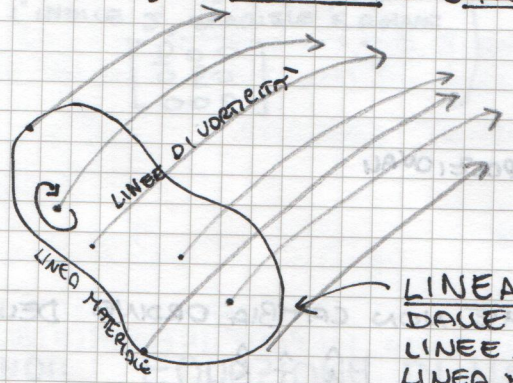 LINEE DI VORTICITA'
LINEA MATERIALE
LINEA
DALLE
LINEE
LINEA